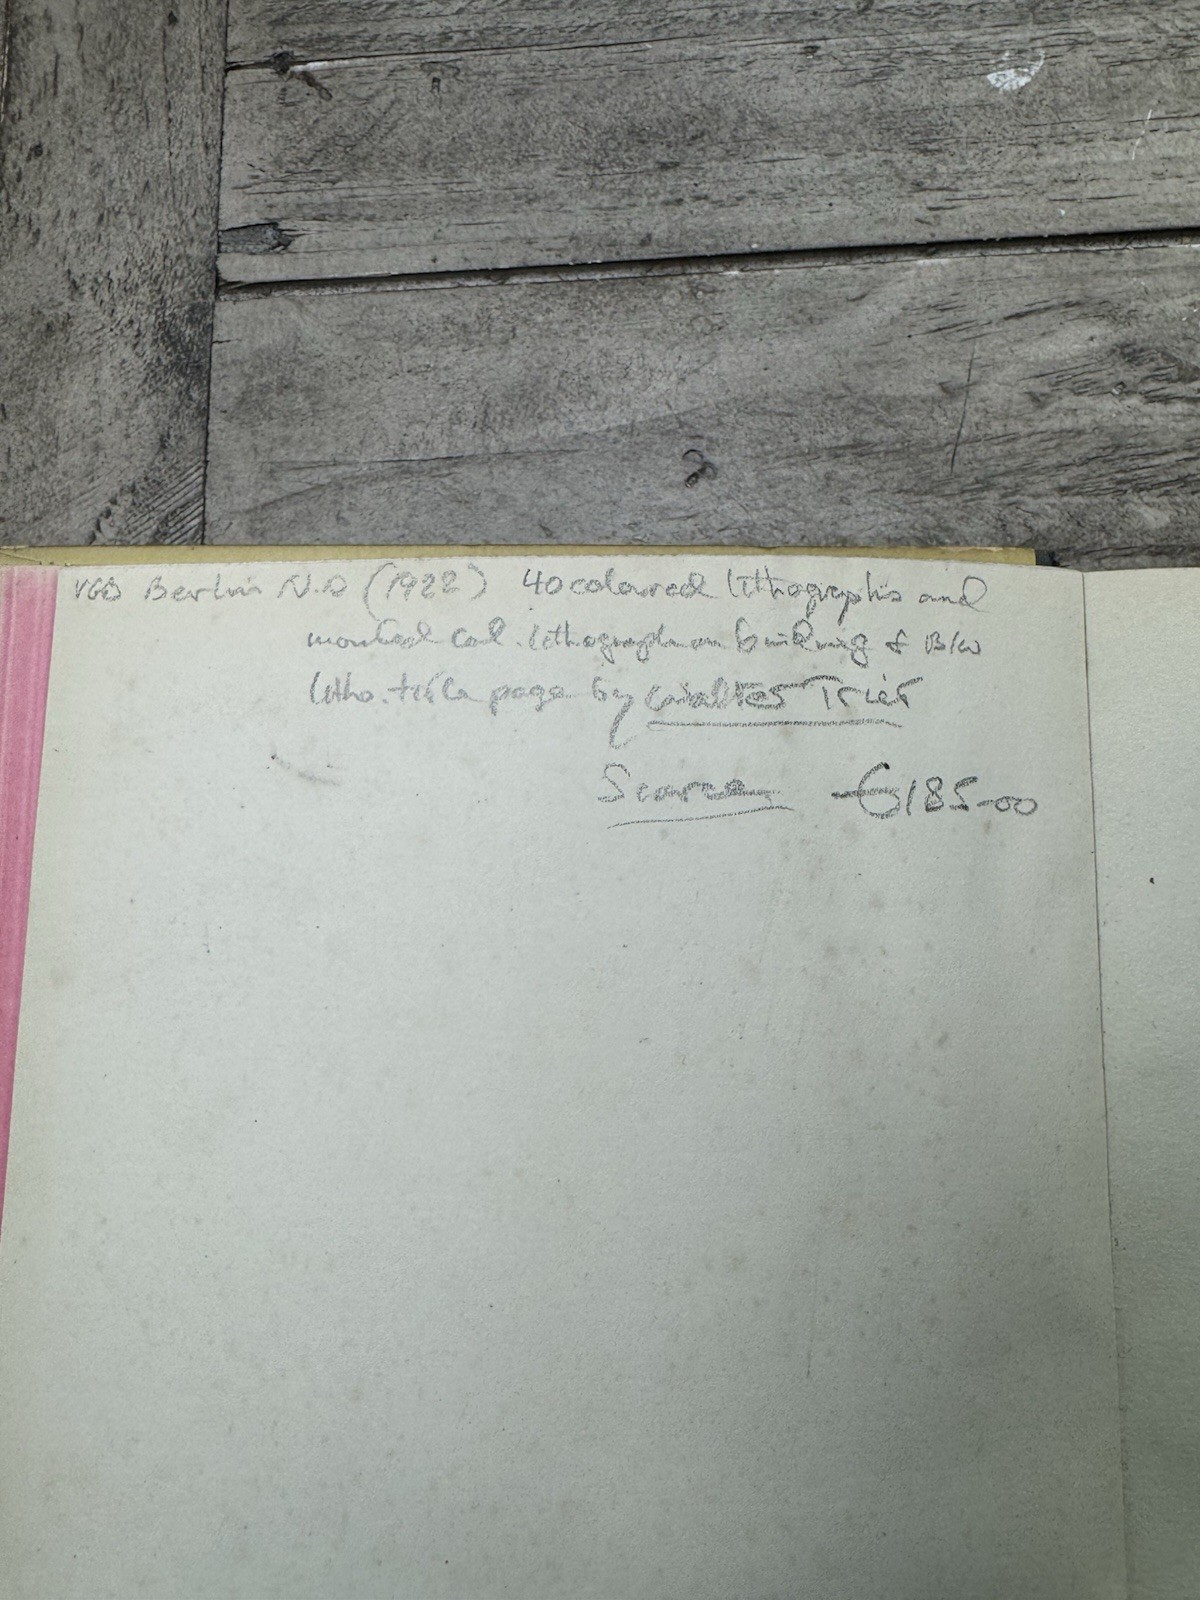 VGD Berlin N.D (1922) 40 coloured lithographs and
mounted col. lithograph on binding & B/W
litho. title page by Walter Trier
Scarce €185-00